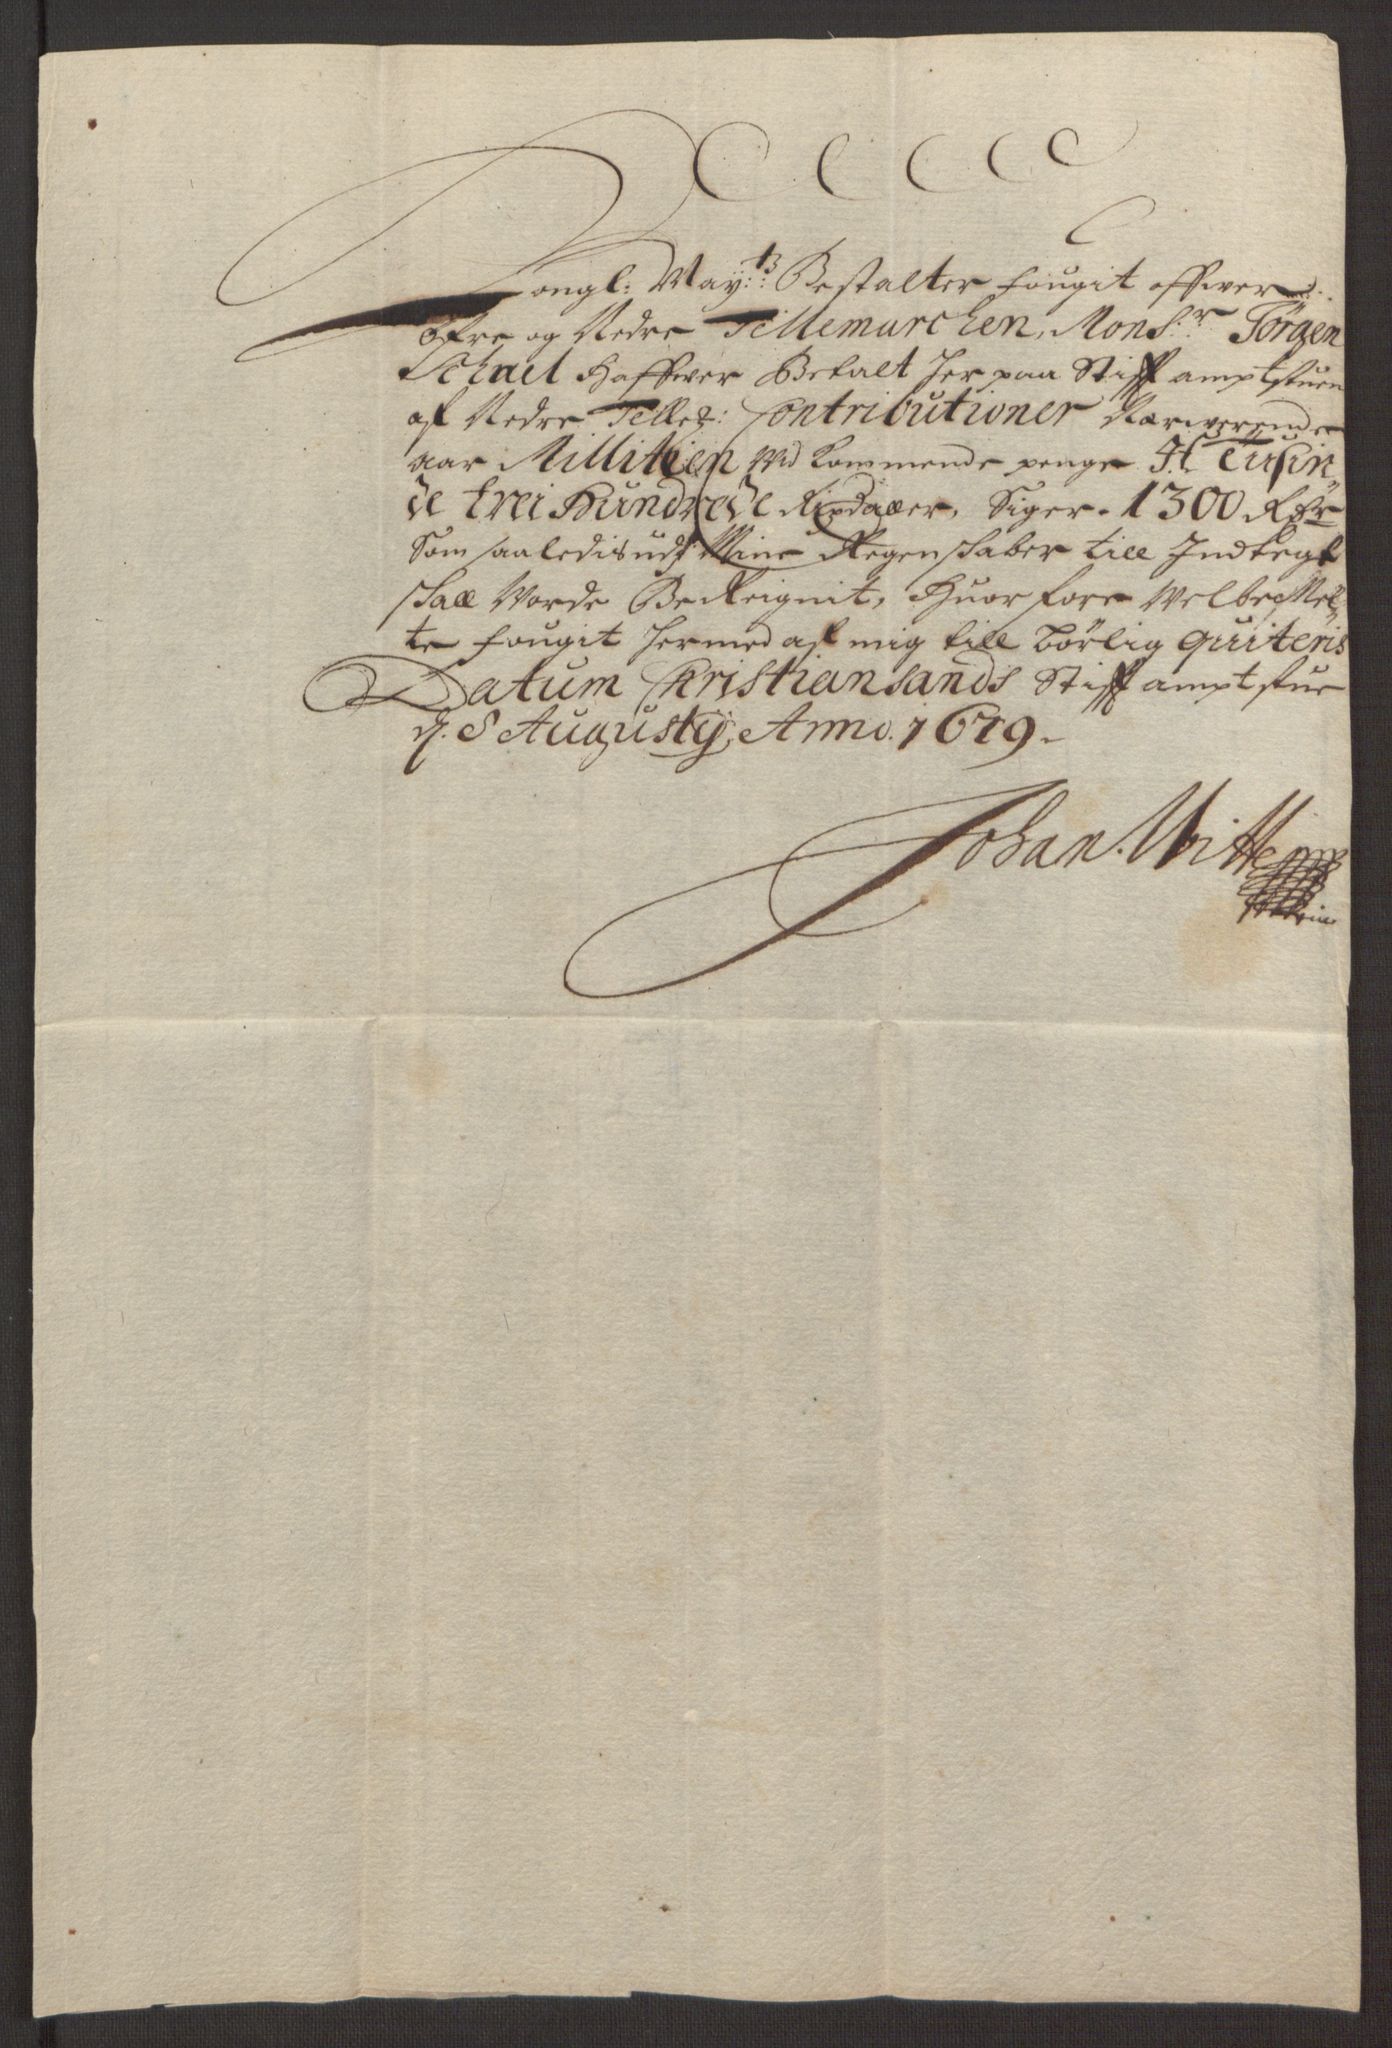 Kongl: May:tz Bestalter fougit offwer
öfre og Nedre Tellemarcken, Mons:r Jörgen
Schael Haffwer Betalt her paa Stifft amptstuen
af Nedre Telle: Contributioner Nærwerende
aar Millitien Wed kommende penge Jt Tusin
de trei Hundrede Rixdaler, Siger. 1300 Rdr
Som saaledis udj Mine Regenschaber till Indtegt
schall Worde Bereignit, Huorfore Welbemel
te fougit hermed af mig till börlig quiteris
Datum Christiansands Stifft amptstue
d. 8 Augustij Anno. 1679.
Johan Witte